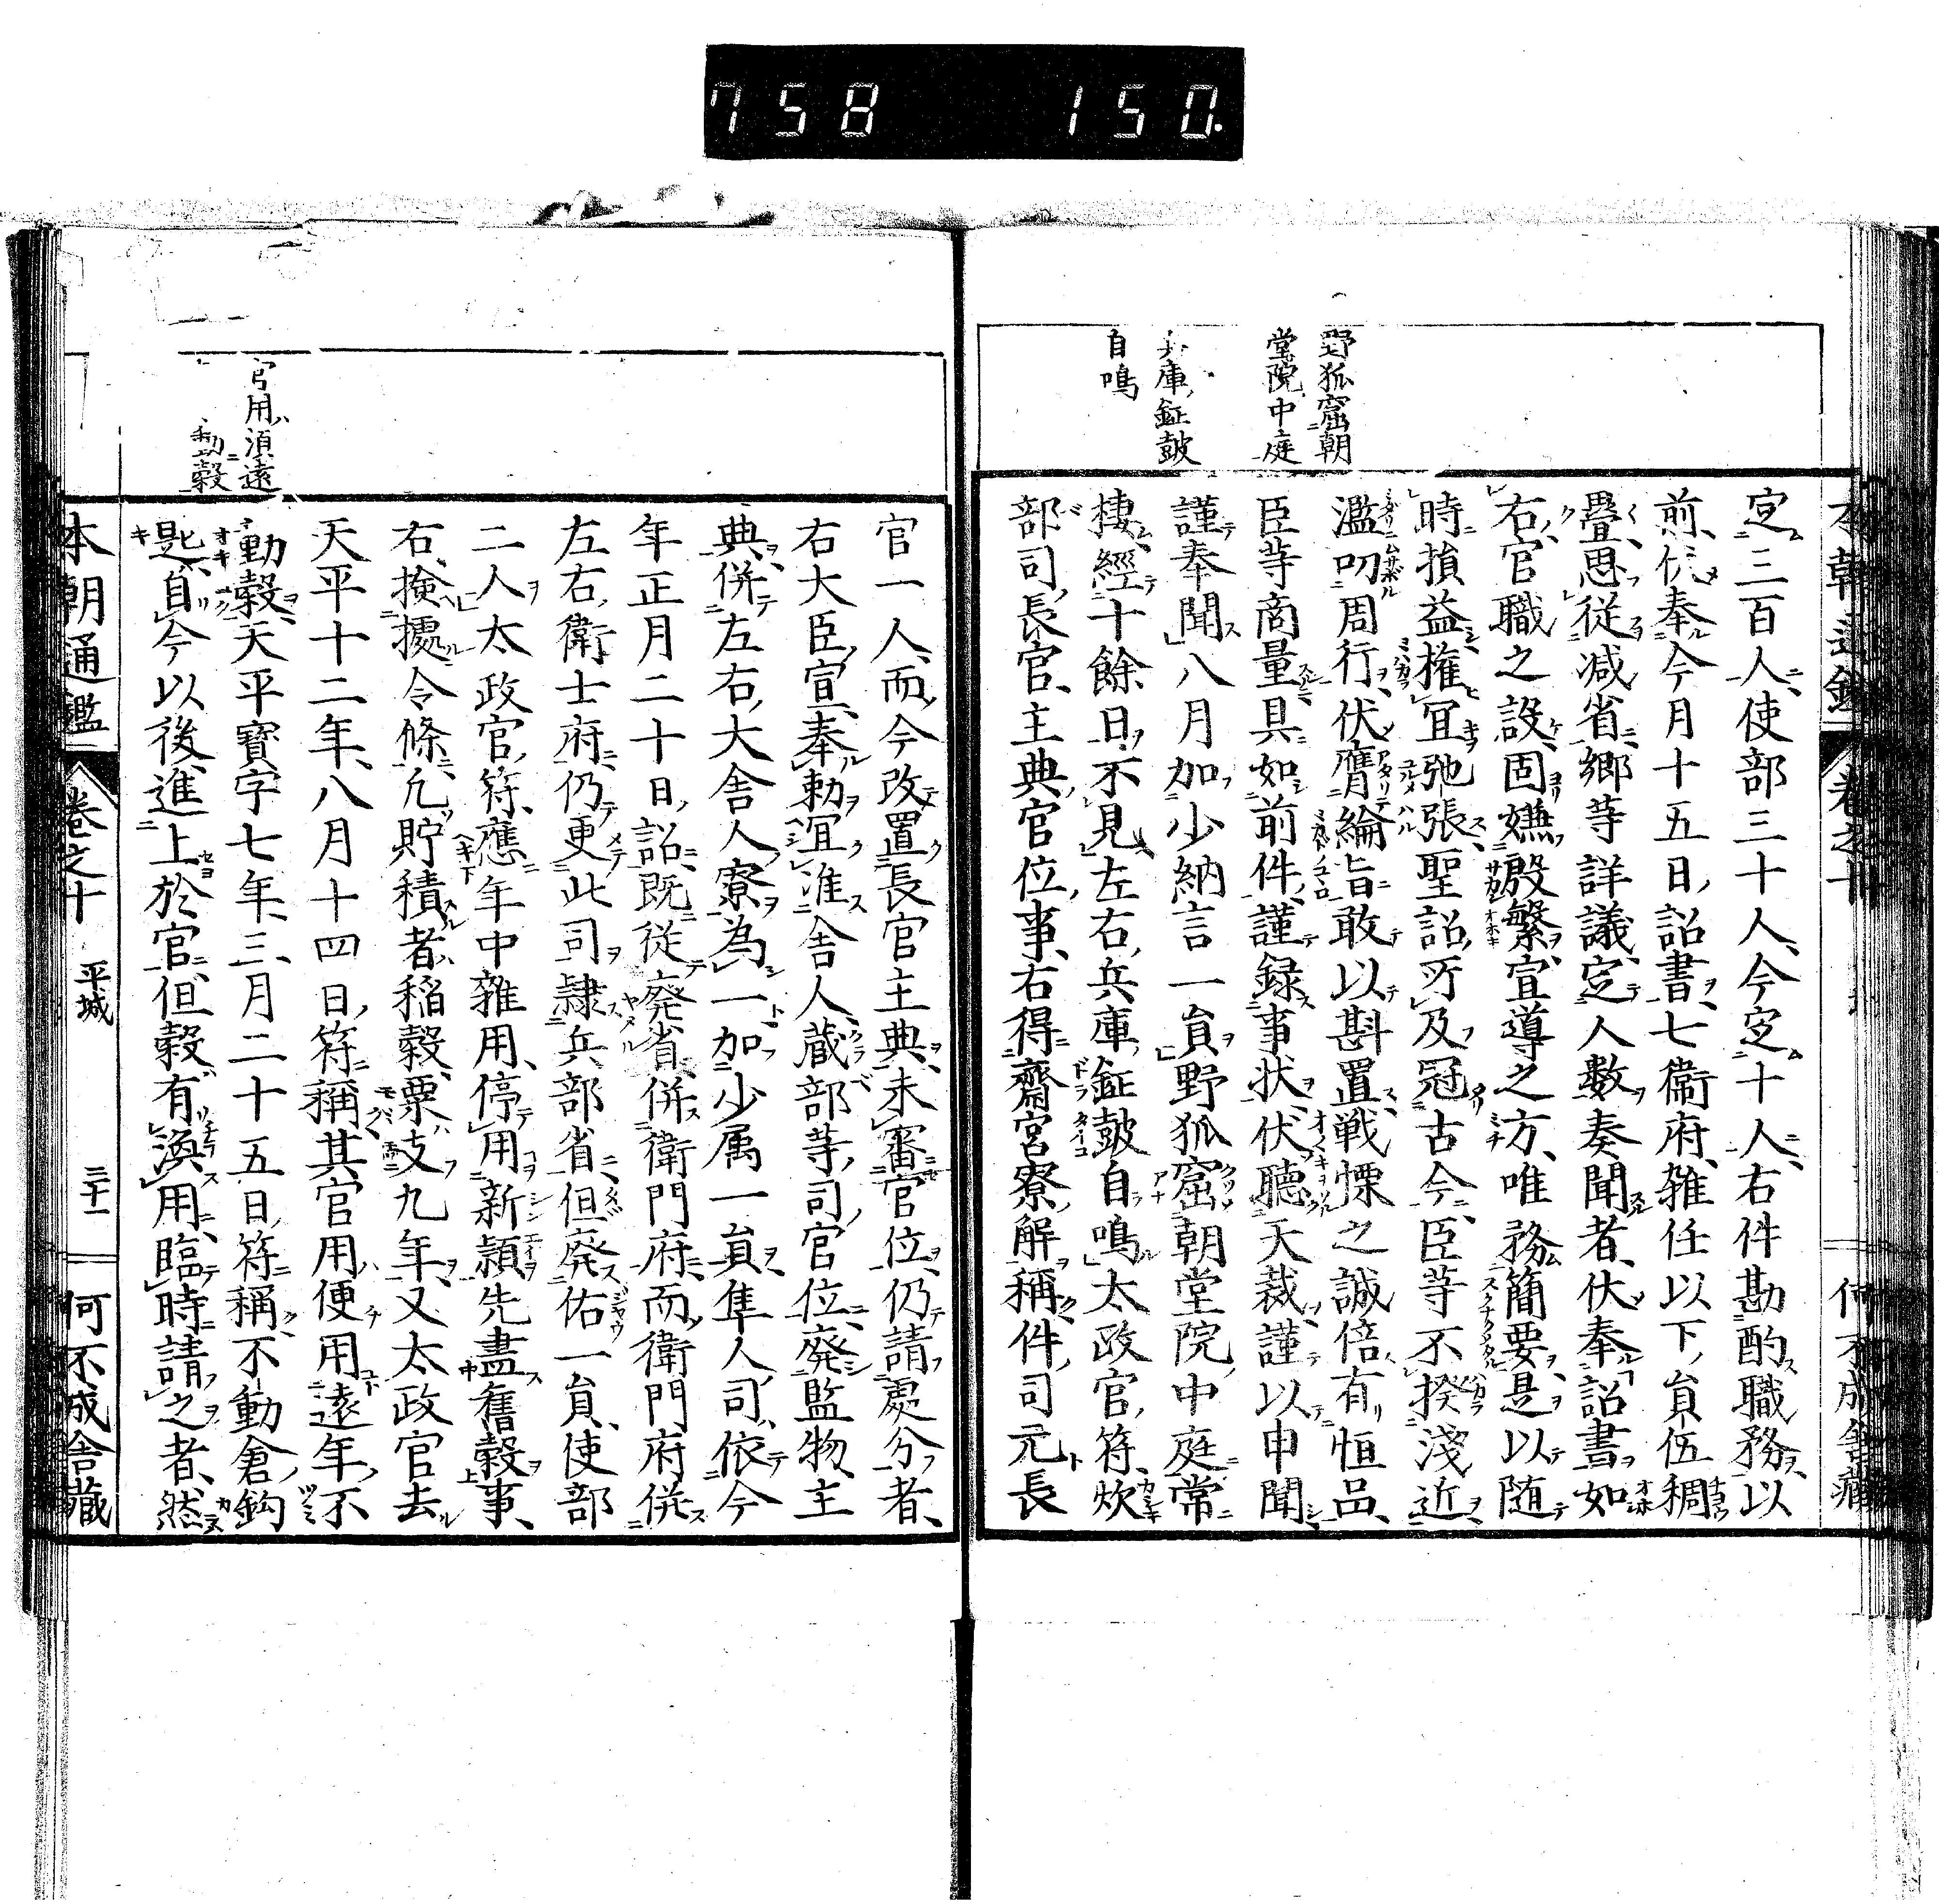 758 150.
野狐窟朝
堂院中庭
庫鉦鼓
自鳴
定三百人使部三十人今定十人右件勘酌職務以
前伏奉今月十五日詔書七衛府雑任以下員伍稠
疊思従減省郷等詳議定人数奏聞者伏奉詔書如
右官職之設固嫌殷繁宜導之方唯務簡要是以随
時損益権宜弛張聖詔所及冠古今臣等不揆浅近
濫叨周行伏膺綸旨敢以斟置戦慄之誠倍有恒品
臣等商量具如前件謹録事状伏聴天裁謹以申聞
謹奉聞八月加少納言一員野狐窟朝堂院中庭常
棲経十餘日不見左右兵庫鉦鼓自鳴太政官符炊
部司長官主典官位事右得齋宮寮解稱件司元長
官用須遠
動穀
官一人而今改置長官主典未審官位仍請處分者
右大臣宣奉勅宜准舎人蔵部等司官位廃監物主
典併左右大舎人寮為一加少属一員隼人司依今
年正月二十日詔既従廃省併衛門府而衛門府併
左右衛士府仍更此司隷兵部省但廃佑一員使部
二人太政官符應年中雑用停用新頴先盡舊穀事
右撿據令條凡貯積者稲穀粟支九年又太政官去
天平十二年八月十四日符稱其官用便用遠年不
動穀天平寶字七年三月二十五日符稱不動倉鈎
匙自今以後進上於官但穀有渙用臨時請之者然
本朝通鑑 巻之十 平城 三十一 何不成舎蔵